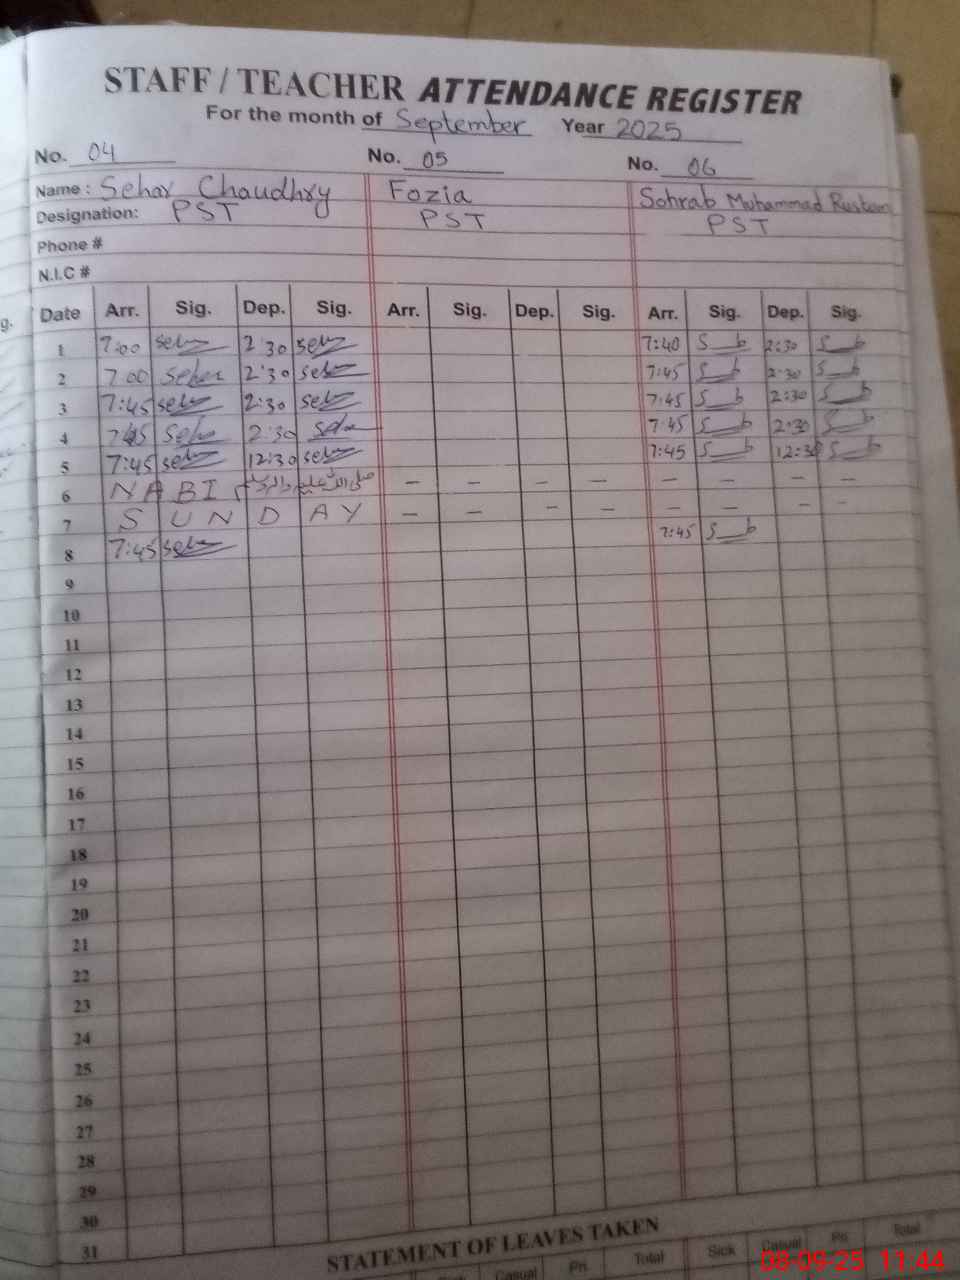 STAFF / TEACHER ATTENDANCE REGISTER
For the month of September Year 2025
No. 04 No. 05 No. 06
Name : Sehar Chaudhry Fozia Sohrab Muhammad Rustam
Designation: PST PST PST
Phone #
N.I.C #
g. Date Arr. Sig. Dep. Sig. Arr. Sig. Dep. Sig. Arr. Sig. Dep. Sig.
1 7:00 2:30 7:40 S__b 2:30 S__b
2 7:00 Sehar 2:30 7:45 S__b 2:30 S__b
3 7:45 2:30 7:45 S__b 2:30 S__b
4 7:45 2:30 7:45 S__b 2:30 S__b
5 7:45 12:30 7:45 S__b 12:30 S__b
6 NABI — — — — — — — —
7 SUNDAY — — — — — — — -
8 7:45 7:45 S__b
9
10
11
12
13
14
15
16
17
18
19
20
21
22
23
24
25
26
27
28
29
30
31
STATEMENT OF LEAVES TAKEN
Sick Casual Pri. Total Sick Casual Total
08-09-25 11:44